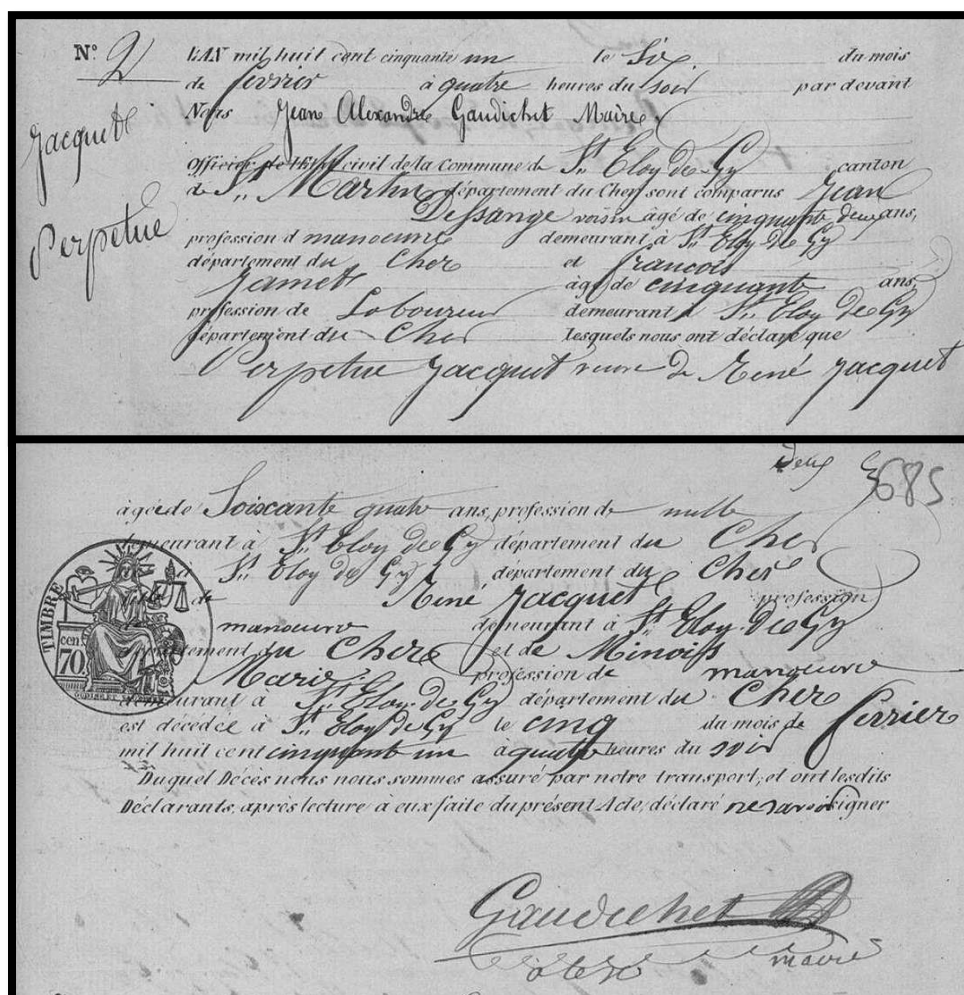 N.º 2
Jacquet
Perpetue
L'AN mil huit cent cinquante un le Six du mois
de fevrier à quatre heures du soir par devant
Nous Jean Alexandre Gaudichet Maire
Officier de l'Etat civil de la Commune de St Eloy de Gy canton
de St Martin département du Cher sont comparus Jean
Dessange voisin âgé de cinquante deux ans,
profession d manoeuvre demeurant à St Eloy de Gy
département du Cher et francois
Jamet âgé de cinquante ans,
profession de Laboureur demeurant à St Eloy de Gy
département du Cher lesquels nous ont déclaré que
Perpetue Jacquet veuve de René Jacquet
685
âgé de Soixante quatre ans, profession de nulle
demeurant à St Eloy de Gy département du Cher
St Eloy de Gy département du Cher
de René Jacquet profession
manoeuvre demeurant à St Eloy de Gy
département du Cher et de Minois
Marie profession de manoeuvre
demeurant à St Eloy de Gy département du Cher
est décédée à St Eloy de Gy le cinq du mois de fevrier
mil huit cent cinquant un à quatre heures du soir
Duquel Décès nous nous sommes assuré par notre transport, et ont lesdits
Déclarants, après lecture à eux faite du présent Acte, déclaré ne savoir signer
TIMBRE
cen.
70
Gaudichet
maire